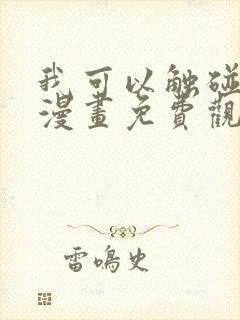 我可以触碰
漫畫免費觀
雷鳴史